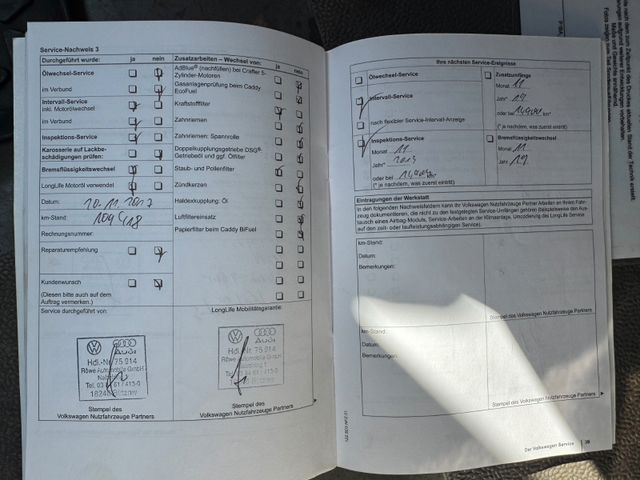 Service-Nachweis 3
Durchgeführt wurde: ja nein
Ölwechsel-Service
im Verbund
Intervall-Service
inkl. Motorölwechsel
im Verbund
Inspektions-Service
Karosserie auf Lackbe-
schädigungen prüfen:
Bremsflüssigkeitswechsel
LongLife Motoröl verwendet
Datum: 10.11.2017
km-Stand:
Rechnungsnummer:
Reparaturempfehlung
Kundenwunsch
(Diesen bitte auch auf dem
Auftrag vermerken.)
Service durchgeführt von:
Audi
Hdl.-Nr. 75 214
Röwe Automobile GmbH
Stempel des
Volkswagen Nutzfahrzeuge Partners
Zusatzarbeiten – Wechsel von: ja nein
AdBlue® (nachfüllen) bei Crafter 5-
Zylinder-Motoren
Gasanlagenprüfung beim Caddy
EcoFuel
Kraftstofffilter
Zahnriemen
Zahnriemen: Spannrolle
Doppelkupplungsgetriebe DSG®:
Getriebeöl und ggf. Ölfilter
Staub- und Pollenfilter
Zündkerzen
Haldexkupplung: Öl
Luftfiltereinsatz
Papierfilter beim Caddy BiFuel
LongLife Mobilitätsgarantie:
Audi
Hdl.-Nr. 75 214
Röwe Automobile GmbH
Stempel des
Volkswagen Nutzfahrzeuge Partners
Ihre nächsten Service-Ereignisse
Ölwechsel-Service
Intervall-Service
nach flexibler Service-Intervall-Anzeige
Inspektions-Service
Monat 11
Jahr*
oder bei
(* je nachdem, was zuerst eintritt)
Zusatzumfänge
Monat 11
Jahr* 19
oder bei
(* je nachdem, was zuerst eintritt)
Bremsflüssigkeitswechsel
Monat 11
Jahr 19
Eintragungen der Werkstatt
In den folgenden Nachweisfeldern kann Ihr Volkswagen Nutzfahrzeuge Partner Arbeiten an Ihrem Fahr-
zeug dokumentieren, die nicht zu den festgelegten Service-Umfängen gehören (beispielsweise den Aus-
tausch eines Airbag-Moduls, Service-Arbeiten an der Klimaanlage, Umcodierung des LongLife Service
auf den zeit- oder laufleistungsabhängigen Service).
km-Stand:
Datum:
Bemerkungen:
Stempel des Volkswagen Nutzfahrzeuge Partners
km-Stand:
Datum:
Bemerkungen:
Stempel des Volkswagen Nutzfahrzeuge Partners
Der Volkswagen Service
39